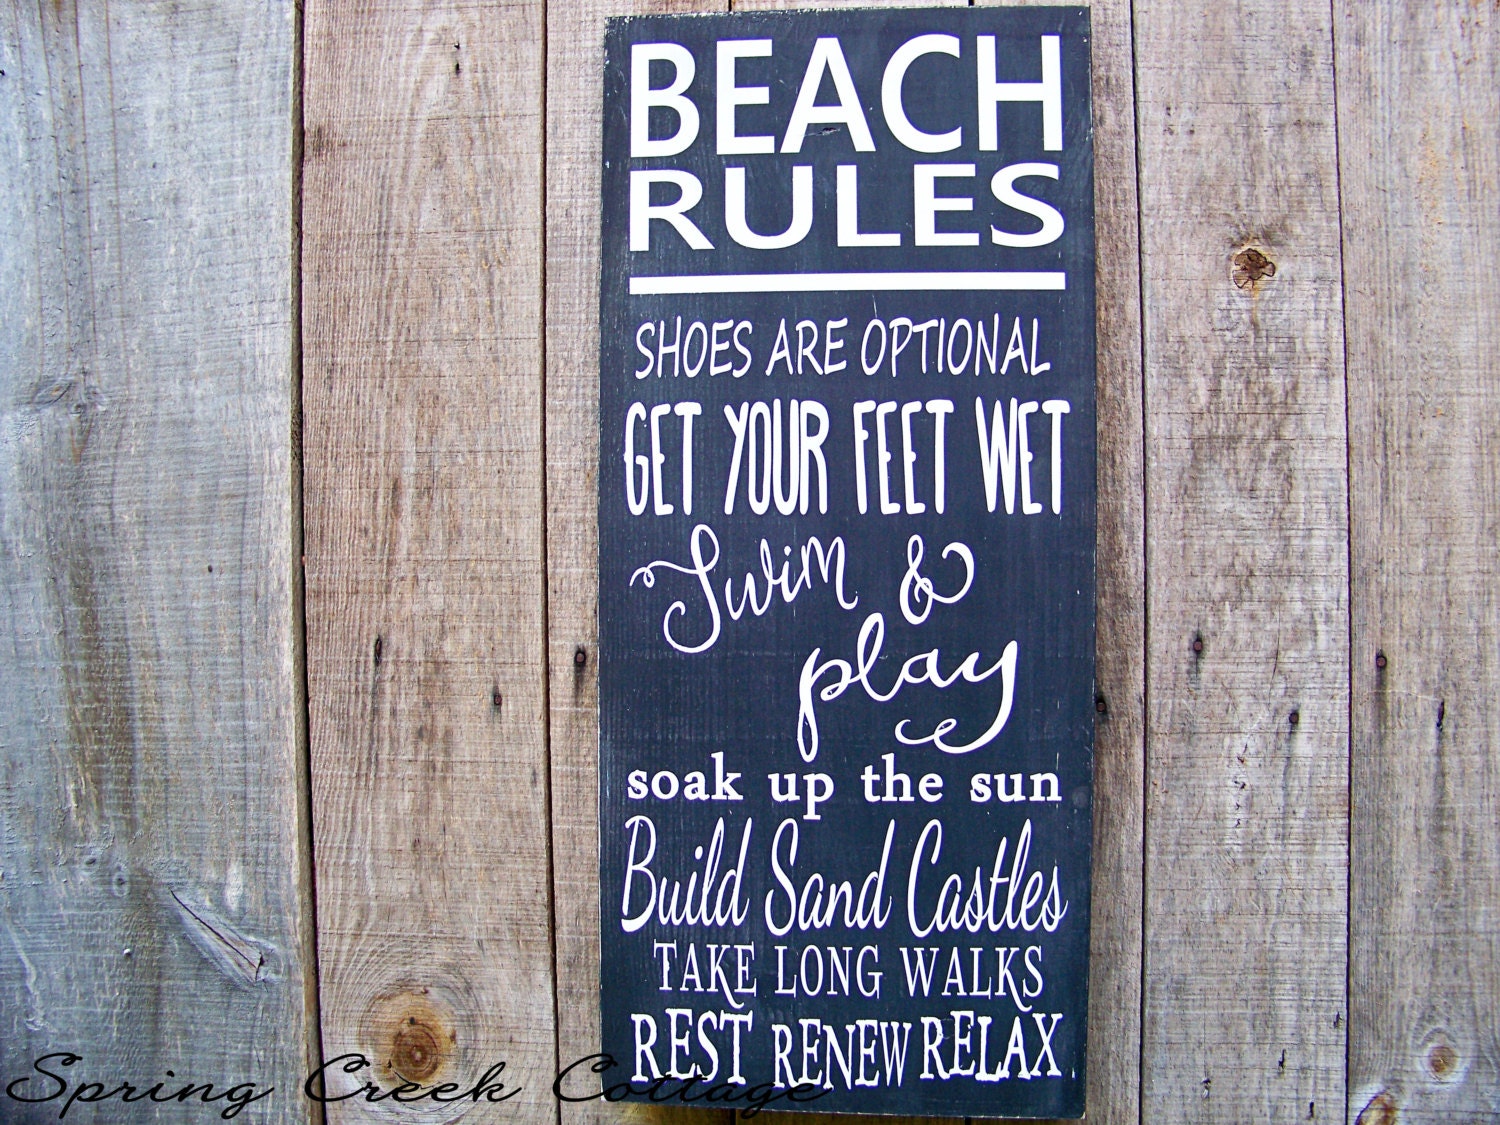 BEACH
RULES
SHOES ARE OPTIONAL
GET YOUR FEET WET
Swim &
play
soak up the sun
Build Sand Castles
TAKE LONG WALKS
REST RENEW RELAX
Spring Creek Cottage